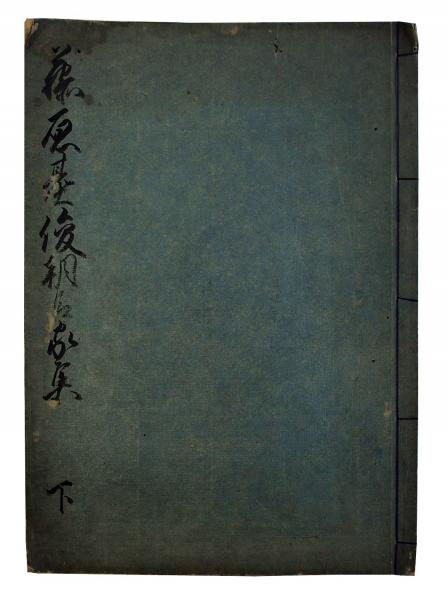 藤原基俊朝臣家集
下